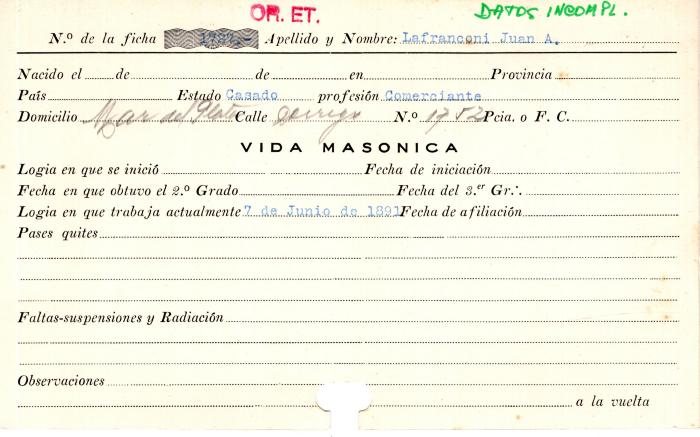 OR. ET. DATOS INCOMPL.
N.º de la ficha 1727.- Apellido y Nombre: Lafranconi Juan A.
Nacido el de de en Provincia
País Estado Casado profesión Comerciante
Domicilio Mar del Plata Calle Dorrego N.º 1752 Pcia. o F. C.
VIDA MASONICA
Logia en que se inició Fecha de iniciación
Fecha en que obtuvo el 2.º Grado Fecha del 3.er Gr∴
Logia en que trabaja actualmente 7 de Junio de 1891 Fecha de afiliación
Pases quites
Faltas-suspensiones y Radiación
Observaciones
a la vuelta